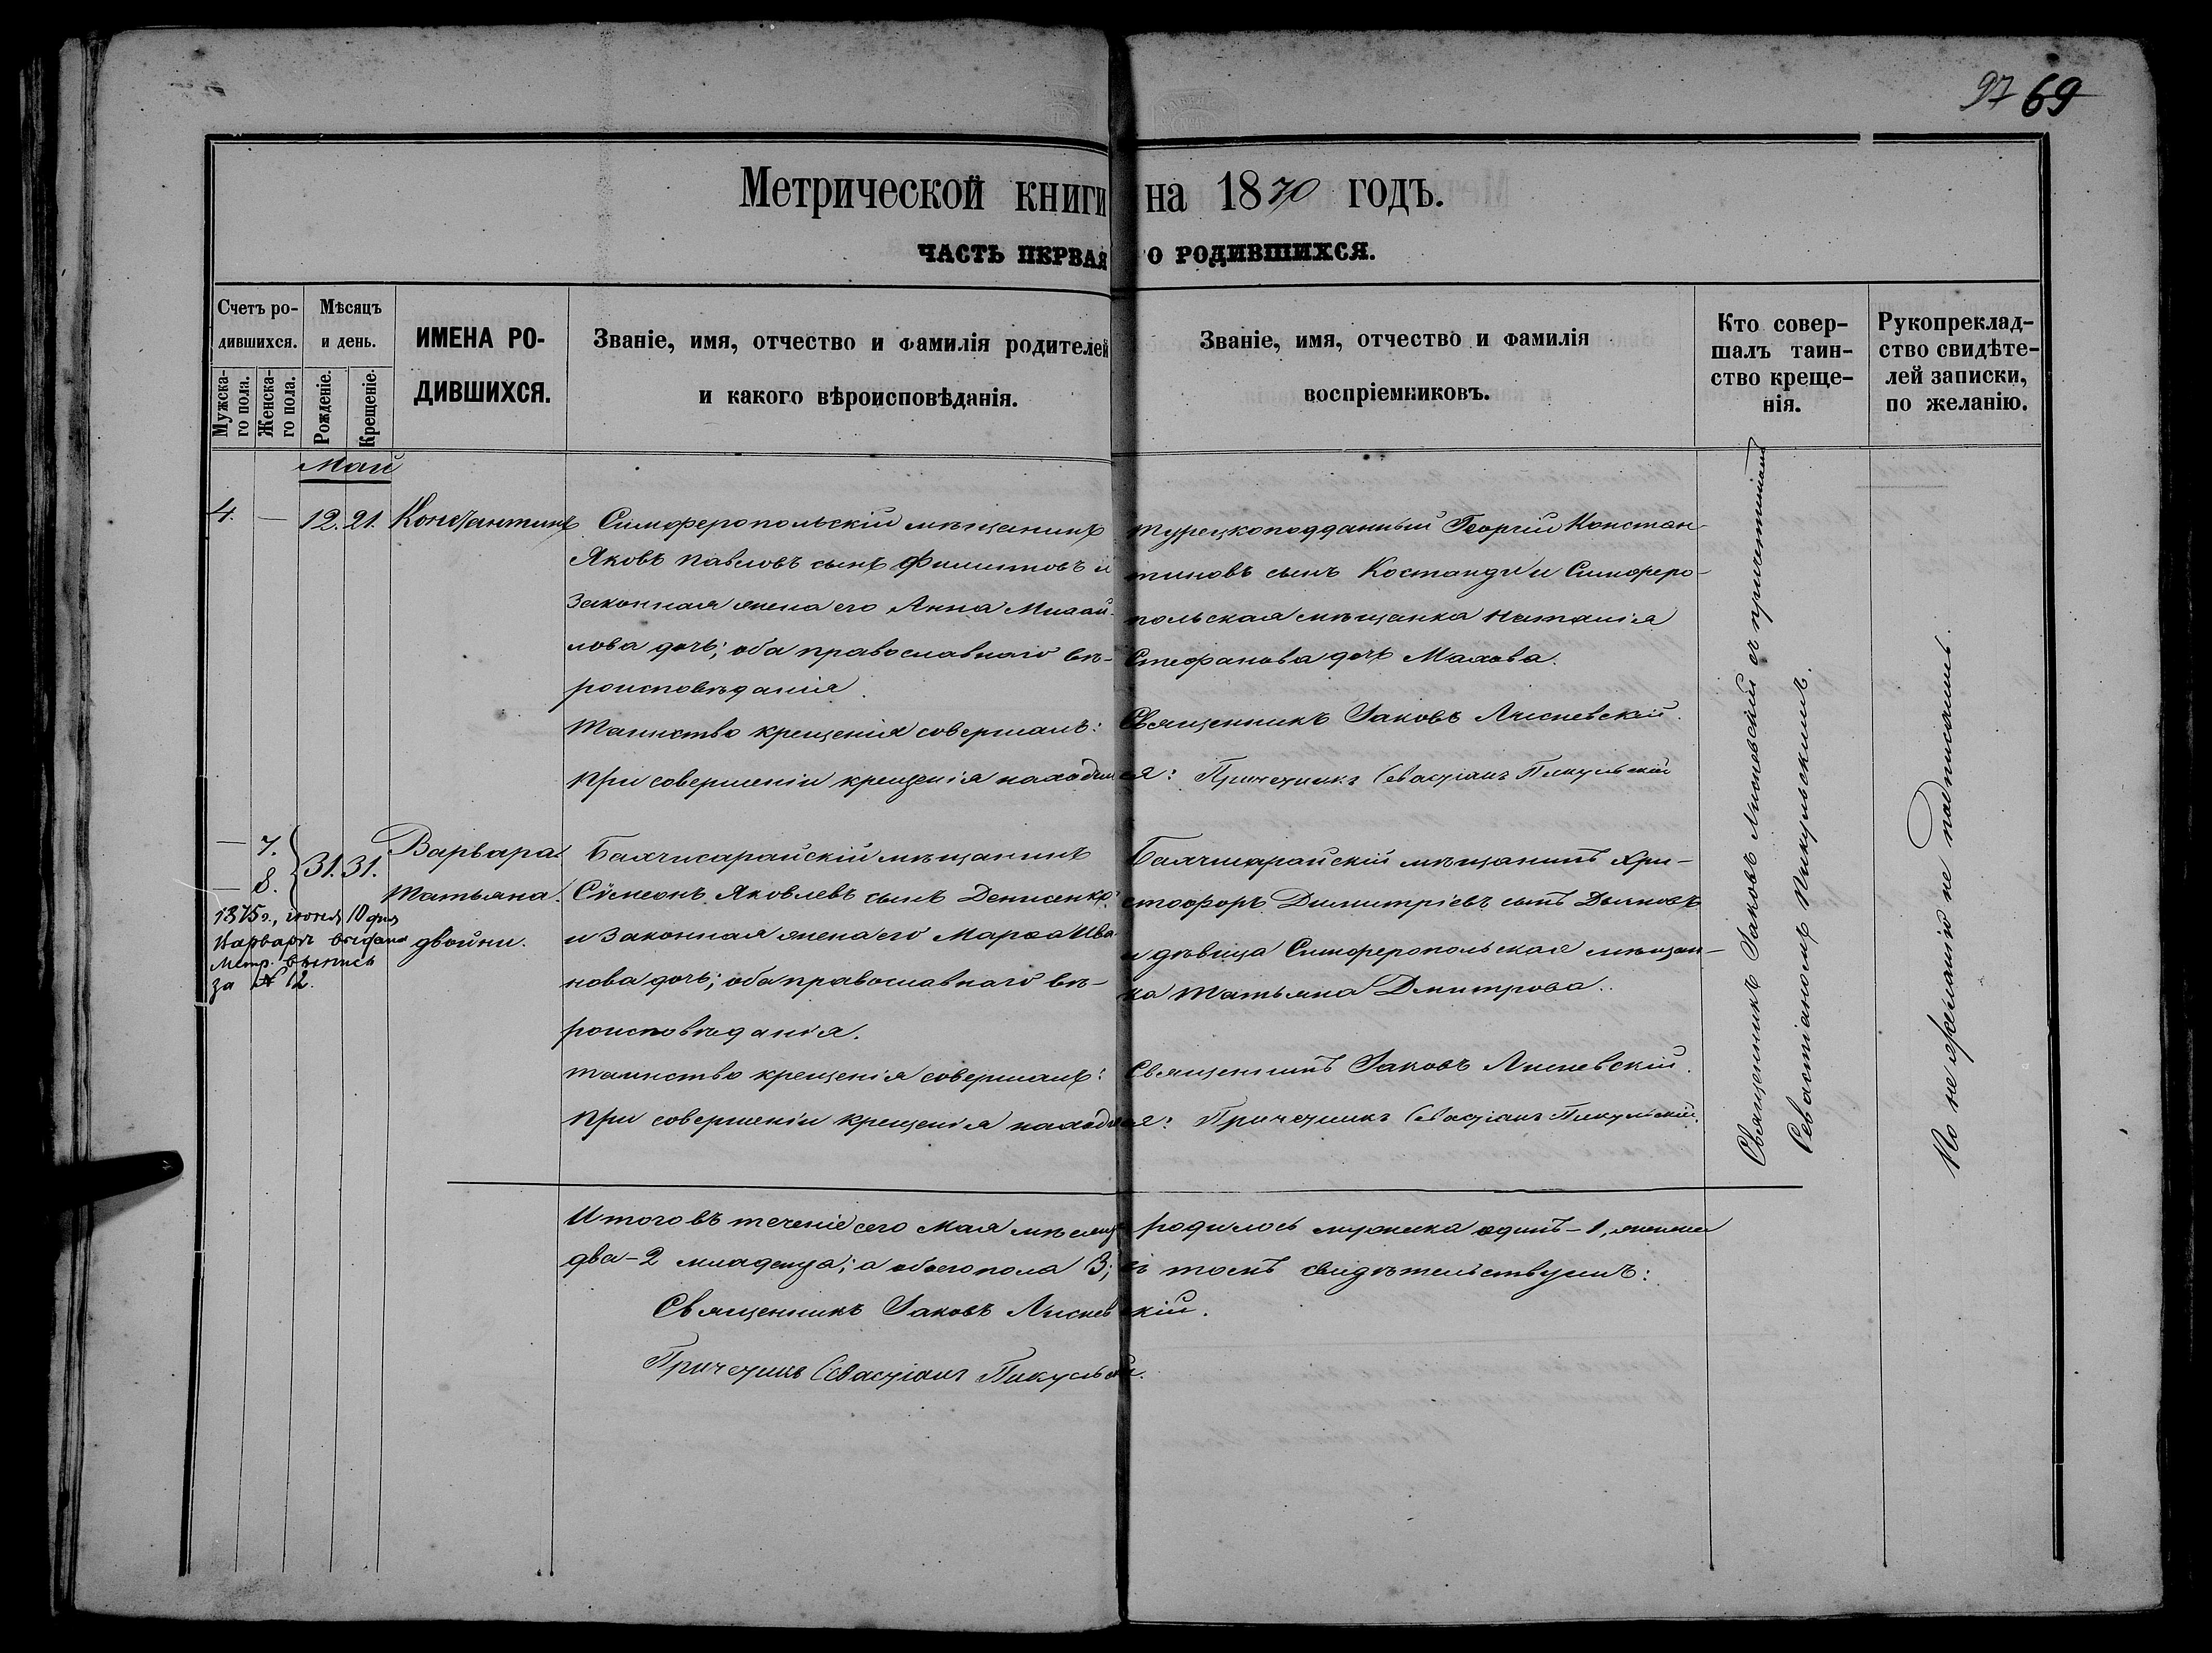 97 69
Метрической книги на 1870 годъ.
ЧАСТЬ ПЕРВАЯ О РОДИВШИХСЯ.
Счетъ ро-
дившихся.
Мужска-
го пола.
Женска-
го пола.
Мѣсяцъ
и день.
Рожденіе.
Крещеніе.
ИМЕНА РО-
ДИВШИХСЯ.
Званіе, имя, отчество и фамилія родителей
и какого вѣроисповѣданія.
Званіе, имя, отчество и фамилія
воспріемниковъ.
Кто совер-
шалъ таин-
ство креще-
нія.
Рукоприклад-
ство свидѣте-
лей записки,
по желанію.
Май
4. — 12. 21. Константинъ
Симферопольскій мѣщанинъ
Яковъ Павловъ сынъ Филиповъ и
законная жена его Анна Михай-
лова дочь; оба православнаго вѣ-
роисповѣданія.
Таинство крещенія совершалъ:
При совершеніи крещенія находился:
Турецкоподданный Георгій Констан-
тиновъ сынъ Костанди и Симферо-
польская мѣщанка Наталія
Стефанова дочь Махова.
Священникъ Іаковъ Лисневскій.
Причетникъ Севастіанъ Пикульскій
— 7.
— 8.
31. 31.
Варвара
Татьяна.
двойни.
1875 г., іюня 10 дня
Варварѣ выдана
Метр. выпись
за № 12.
Бахчисарайскій мѣщанинъ
Сѵмеонъ Яковлевъ сынъ Денисенко
и законная жена его Марѳа Ива-
нова дочь; оба православнаго вѣ-
роисповѣданія.
Таинство крещенія совершалъ:
При совершеніи крещенія находился:
Бахчисарайскій мѣщанинъ Хри-
стофоръ Димитріевъ сынъ Дьяновъ
и дѣвица Симферопольская мѣщан-
ка Татьяна Дмитрова.
Священникъ Іаковъ Лисневскій.
Причетникъ Севастіанъ Пикульскій.
Священникъ Іаковъ Лисневскій съ причетникомъ
Севастіаномъ Пикульскимъ.
По не желанію не подписались.
Итого въ теченіе сего Мая мѣсяца родилось мужеска одинъ - 1, женска
два - 2 младенца; а обоего пола 3; въ томъ свидѣтельствуемъ:
Священникъ Іаковъ Лисневскій.
Причетникъ Севастіанъ Пикульскій.